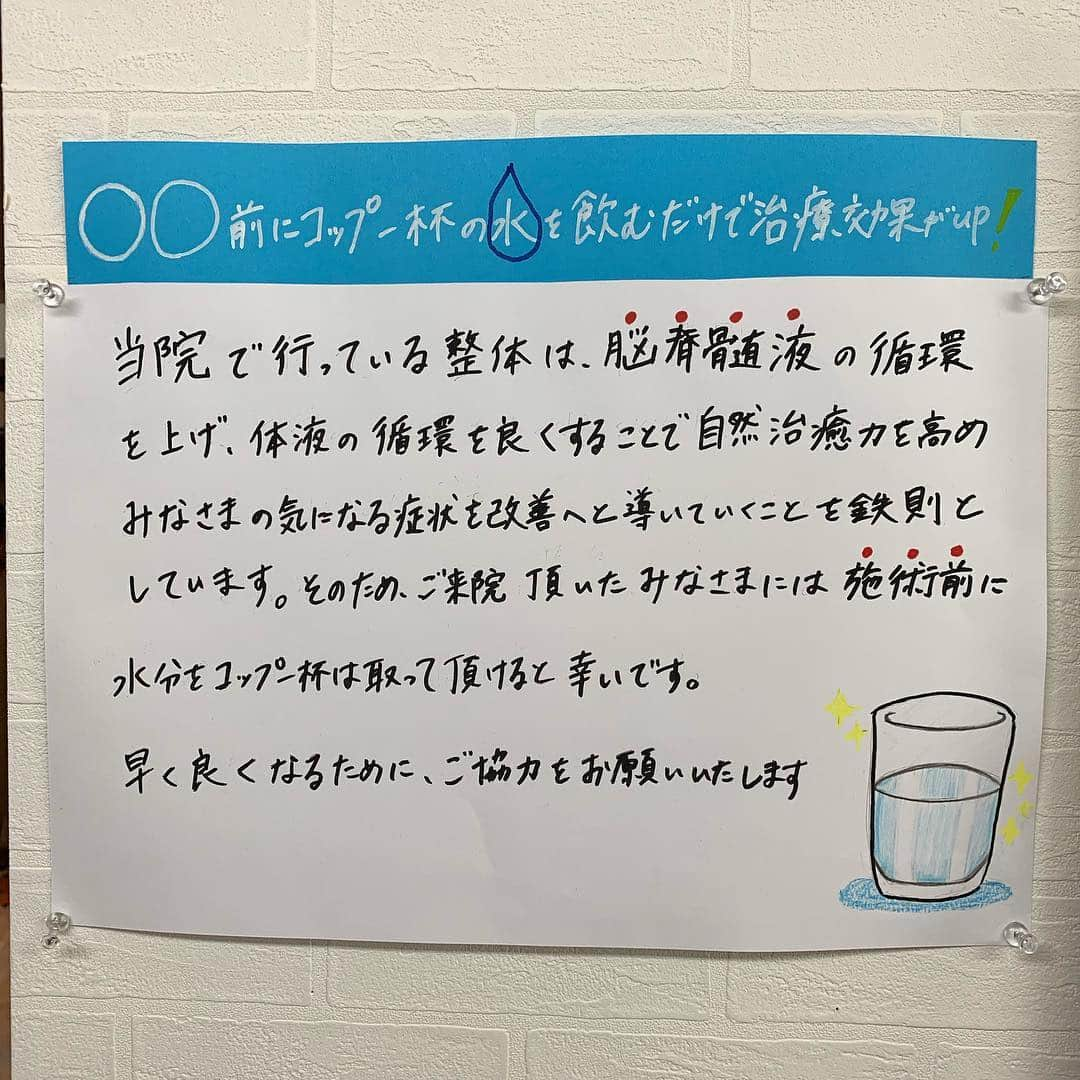 〇〇前にコップ一杯の水を飲むだけで治療効果がup!
当院で行っている整体は、脳脊髄液の循環
を上げ、体液の循環を良くすることで自然治癒力を高め
みなさまの気になる症状を改善へと導いていくことを鉄則と
しています。そのため、ご来院頂いたみなさまには施術前に
水分をコップ一杯は取って頂けると幸いです。
早く良くなるために、ご協力をお願いいたします